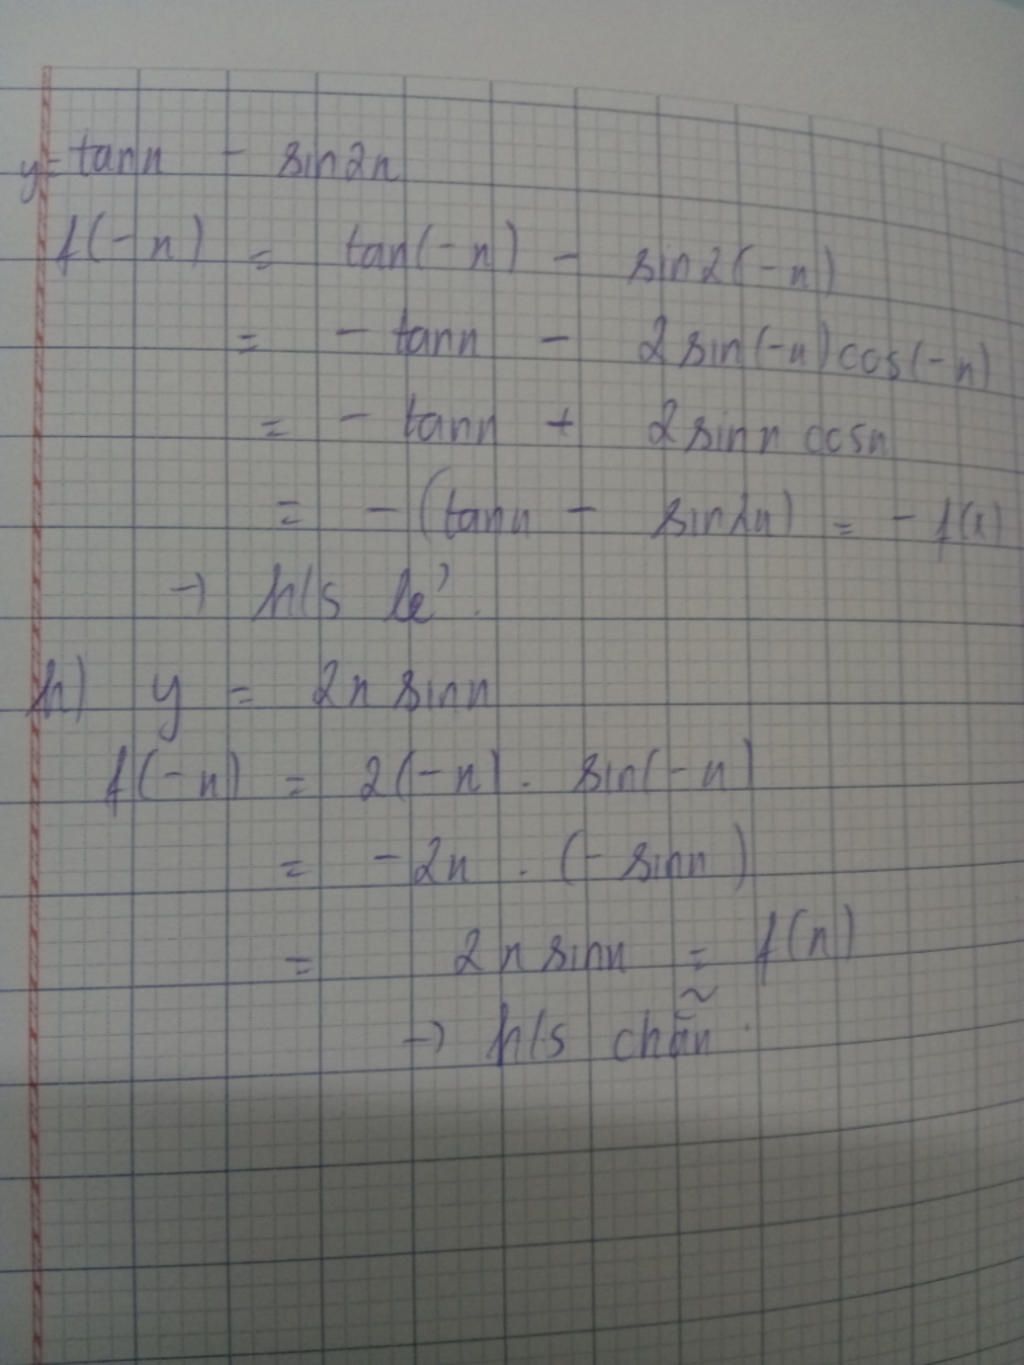 y = tanx - sin2x
f(-x) = tan(-x) - sin2(-x)
= - tanx - 2sin(-x)cos(-x)
= - tanx + 2sinx cosx
= - (tanx - sin2x) = - f(x)
→ h/s lẻ.
h) y = 2x sinx
f(-x) = 2(-x) . sin(-x)
= - 2x . (- sinx)
= 2x sinx = f(x)
→ h/s chẵn.